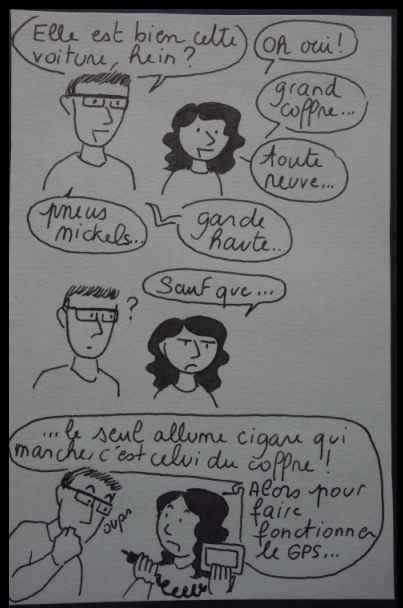 Elle est bien cette
voiture, hein ?
Oh oui !
grand
coffre...
toute
neuve...
pneus
nickels...
garde
haute...
?
Sauf que...
...le seul allume cigare qui
marche, c'est celui du coffre !
oups
Alors pour
faire
fonctionner
le GPS...